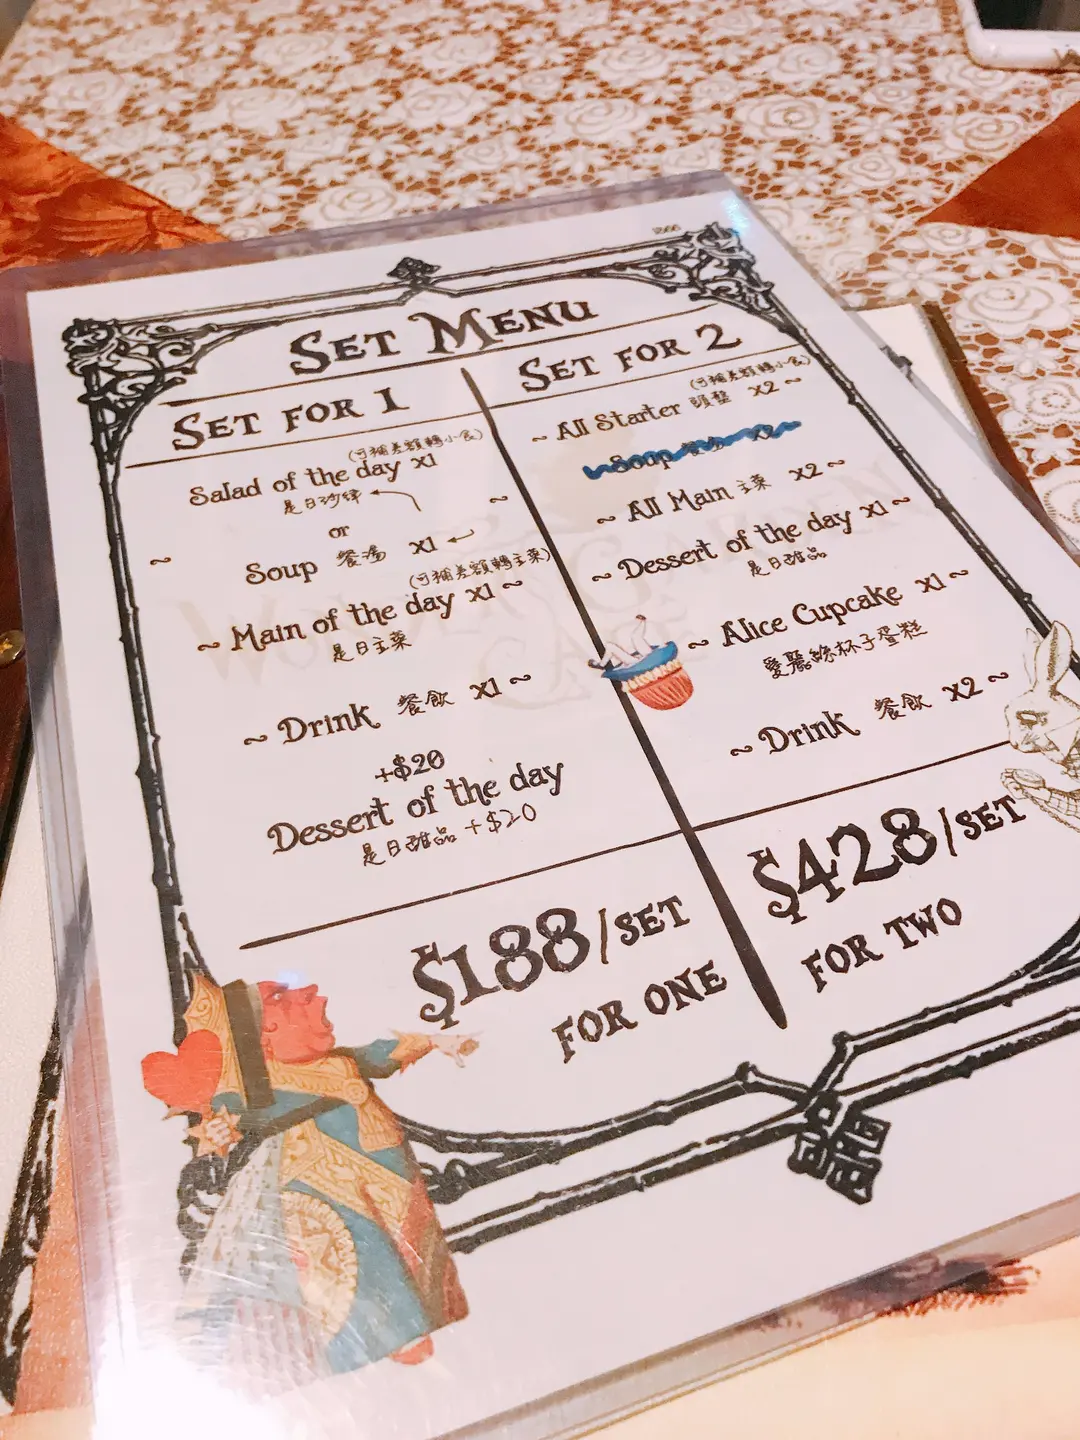 SET MENU
SET FOR 1
(可補差額轉小食)
Salad of the day x1
是日沙律
or
~ Soup 餐湯 x1 ~
(可補差額轉主菜)
~ Main of the day x1 ~
是日主菜
~ Drink 餐飲 x1 ~
+$20
Dessert of the day
是日甜品 +$20
$188/SET
FOR ONE
SET FOR 2
(可補差額轉小食)
~ All Starter 頭盤 x2 ~
Soup x2
~ All Main 主菜 x2 ~
~ Dessert of the day x1 ~
是日甜品
~ Alice Cupcake x1 ~
愛麗絲杯子蛋糕
~ Drink 餐飲 x2 ~
$428/SET
FOR TWO